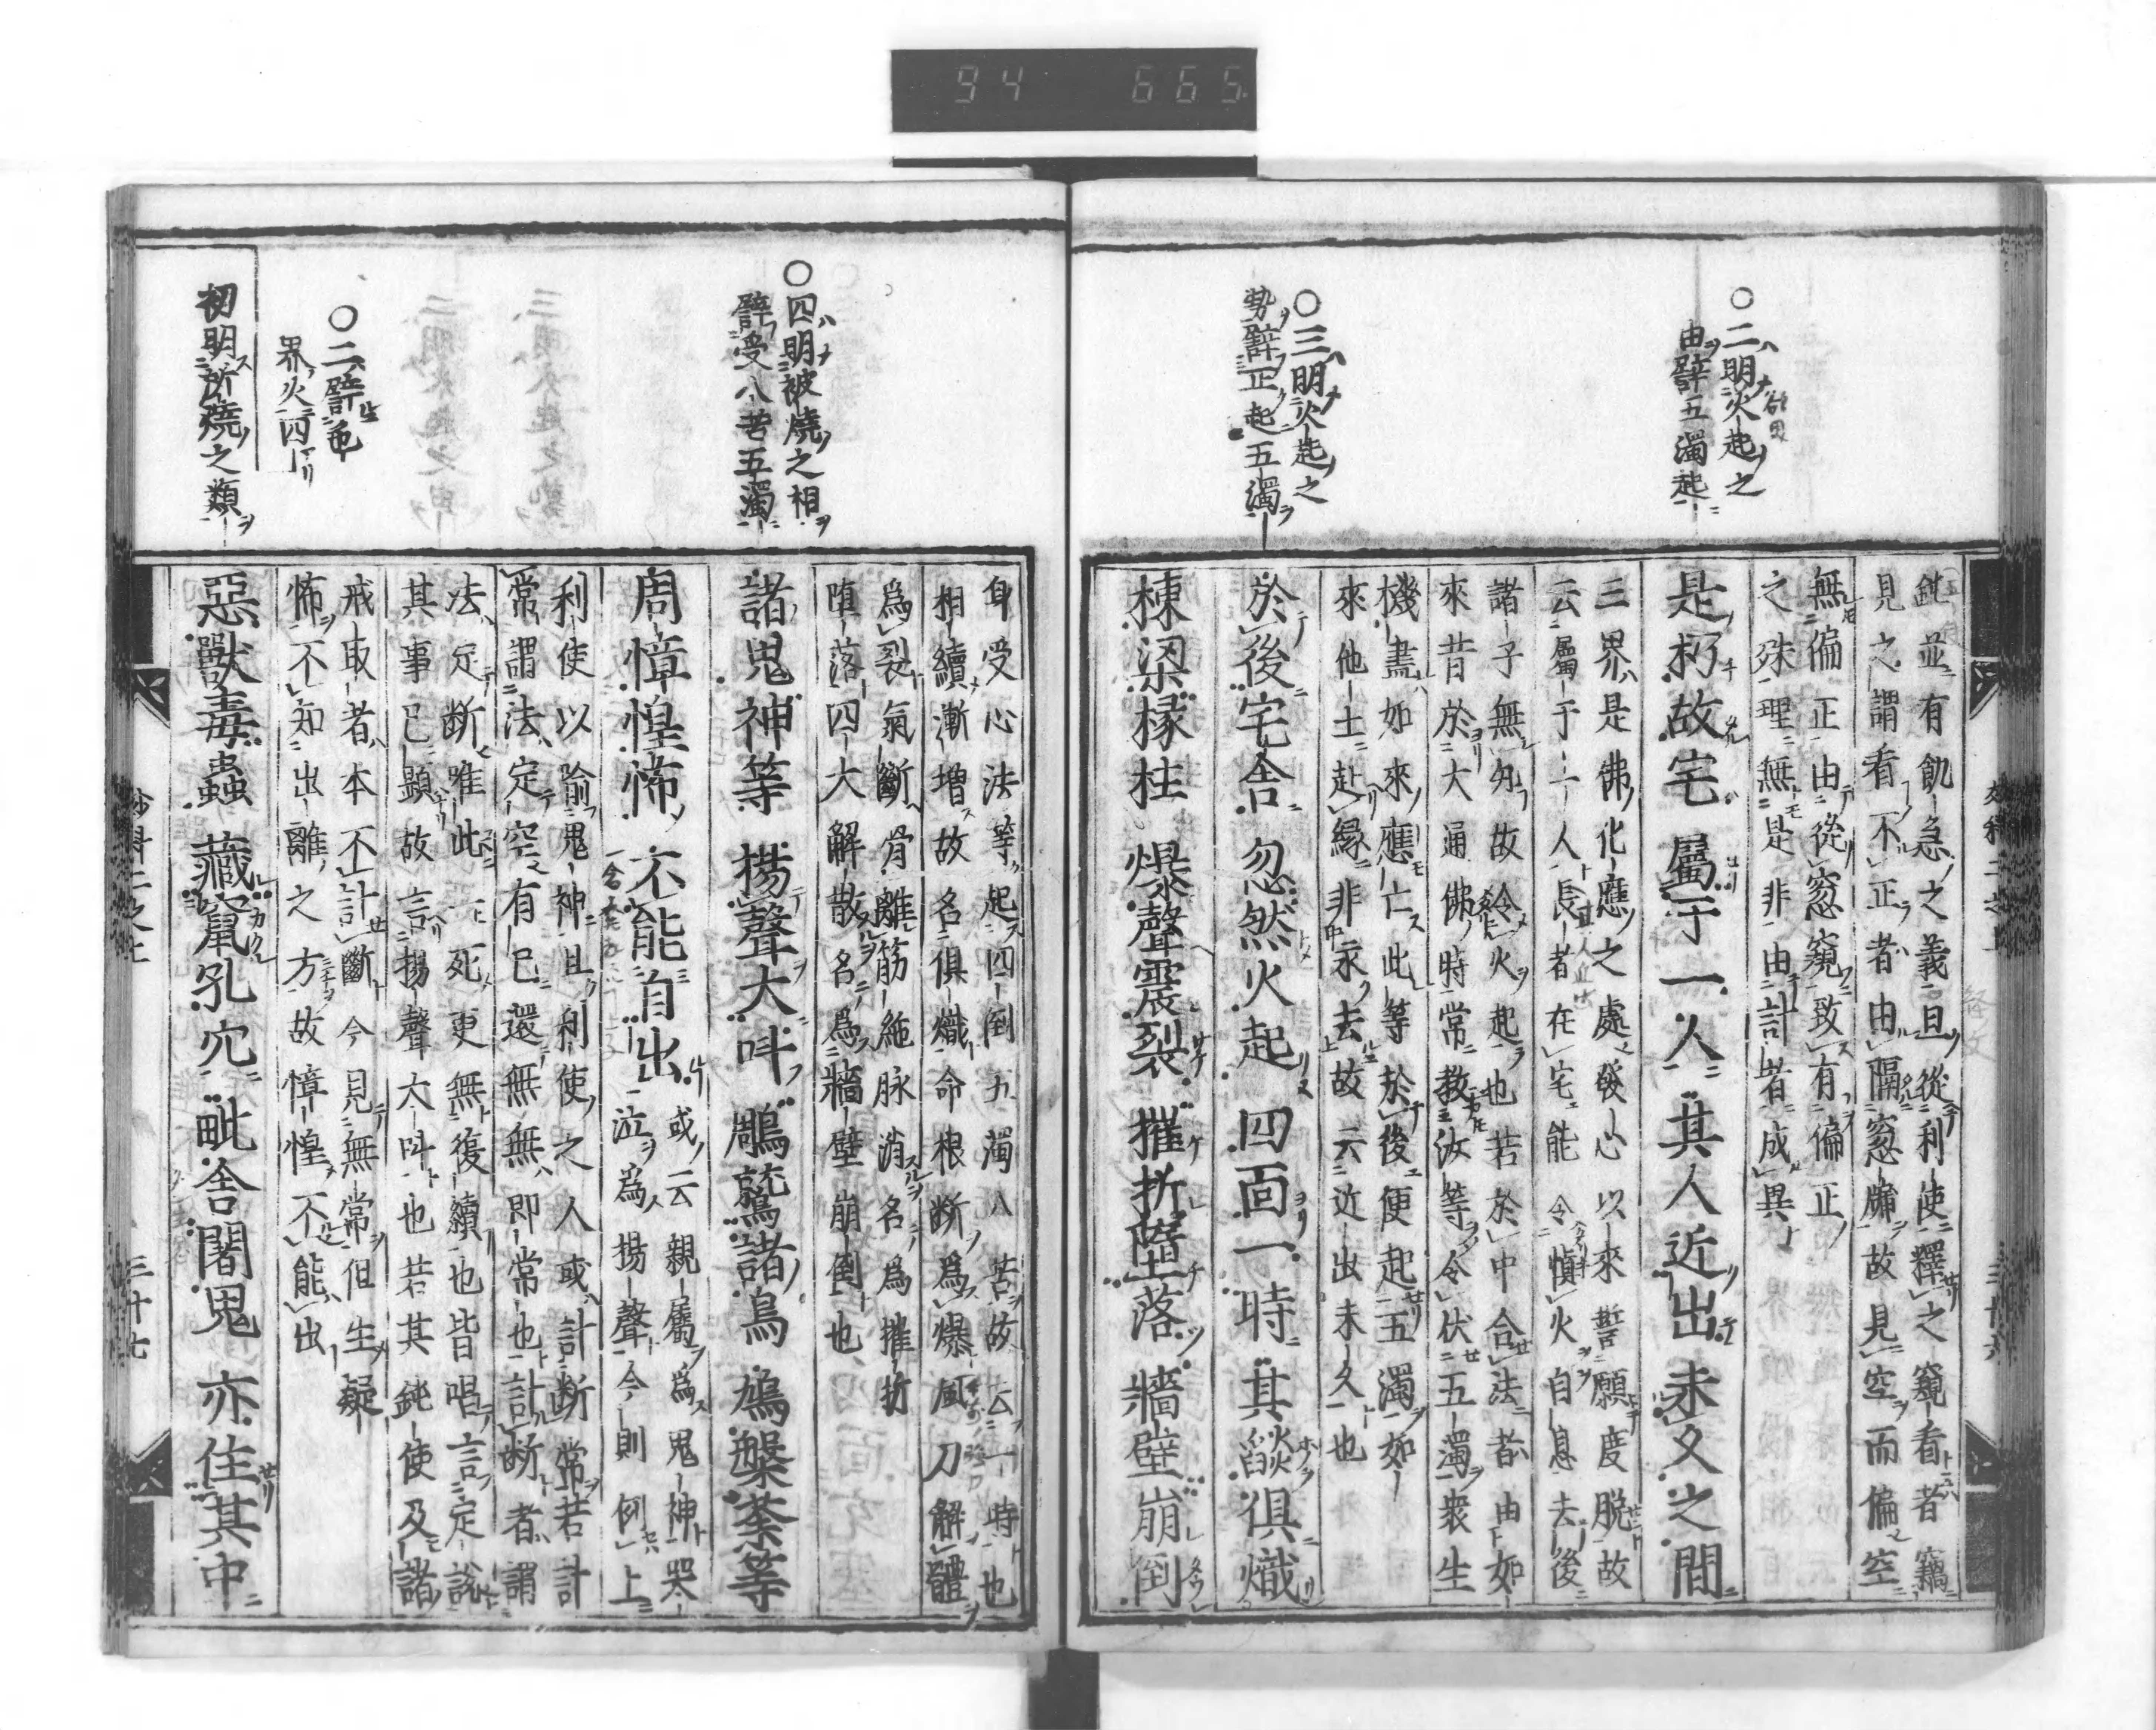 94 665
○二明火起之
由譬五濁起
○三明火起之
勢譬正起五濁
鈍並有飢急之義且從利使釋之窺看者竊
見之謂看不正者由隔窓牖故見空而偏空
無偏正由從窓窺致有偏正
之殊理無是非由計者成異
是朽故宅 屬于一人 其人近出 未久之間
三界是佛化應之處發心以來誓願度脱故
云屬于一人長者在宅能令愼火自息去後
諸子無 故 火起也若於中合法者由如
來昔於大通佛時常教汝等令伏五濁衆生
機盡如來應亡此等於後便起五濁如
來他土赴縁非永去故云近出未久也
於後宅舍 忽然火起 四面一時 其燄俱熾
棟梁椽柱 爆聲震裂 摧折墮落 牆壁崩倒
○四明被燒之相
譬受八苦五濁
○二譬色
界火四
初明所燒之類
身受心法等起四倒五濁八苦故云一時也
相續漸増故名俱熾命根斷爲爆風刀解體
爲裂氣斷骨離筋絶脉消名爲摧折
堕落四大解散名爲牆壁崩倒也
諸鬼神等 揚聲大呌 鵰鷲諸鳥 鳩槃荼等
周慞惶怖 不能自出 或云親屬爲鬼神哭
泣爲揚聲今則例上
利使以喻鬼神且利使之人或計断常若計
常謂法定空有已還無無即常也計断者謂
法定断唯此一死更無復續也皆唱言定說
其事已顯故言揚聲大呌也若其鈍使及諸
戒取者本不計斷今見無常但生疑
怖不知出離之方故慞惶不能出
惡獸毒蟲 藏竄孔穴 毗舍闍鬼 亦住其中
三十七